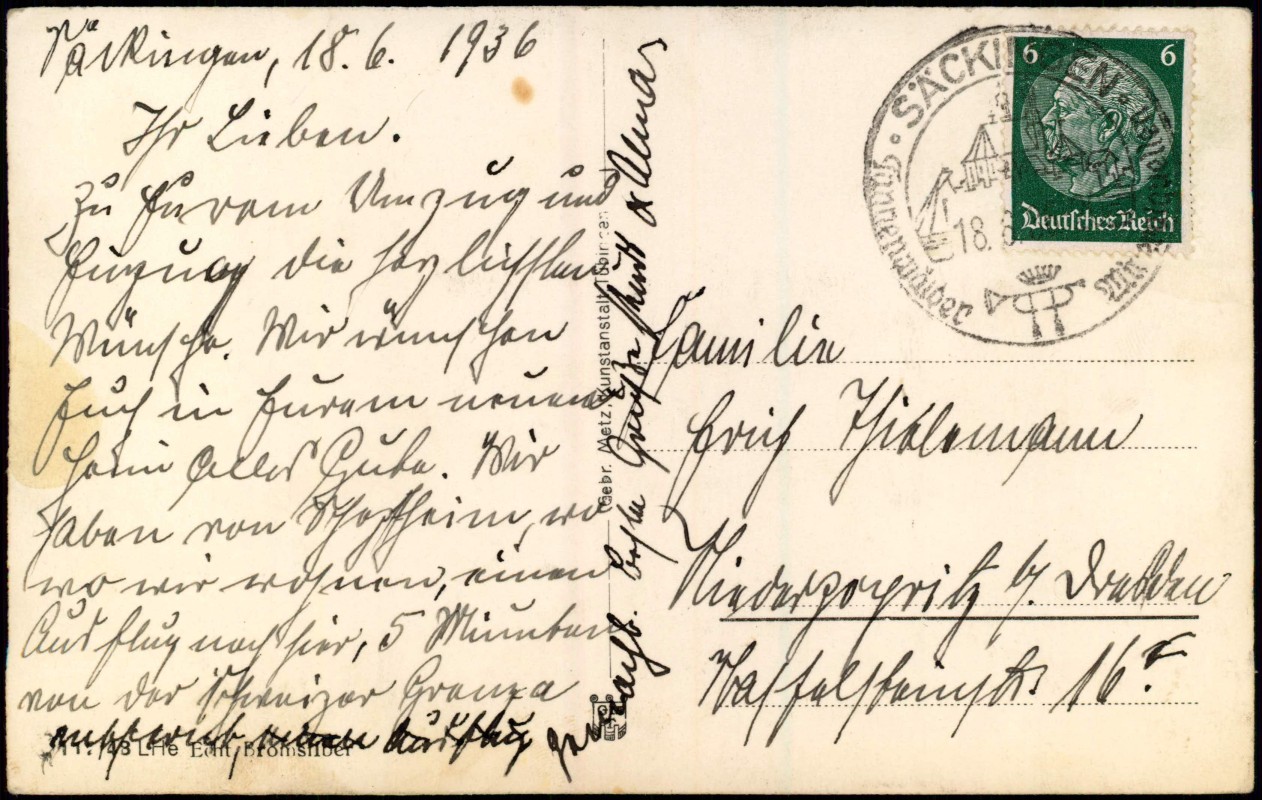 Säckingen, 18. 6. 1936
Ihr Lieben.
Zu Eurem Umzug und
Einzug die herzlichsten
Wünsche. Wir wünschen
Euch in Eurem neuen
Heim alles Gute. Wir
haben von Schopfheim, wo
wo wir wohnen, einen
Ausflug nach hier, 5 Minuten
von der Schweizer Grenze
Ausflug
gemacht. Beste Grüße Kurt & Alma
Gebr. Metz, Kunstanstalt, Tübingen
SÄCKINGEN
18. 6.
6 6
Deutsches Reich
Familie
Erich Thielemann
Niederpoyritz b/ Dresden
16